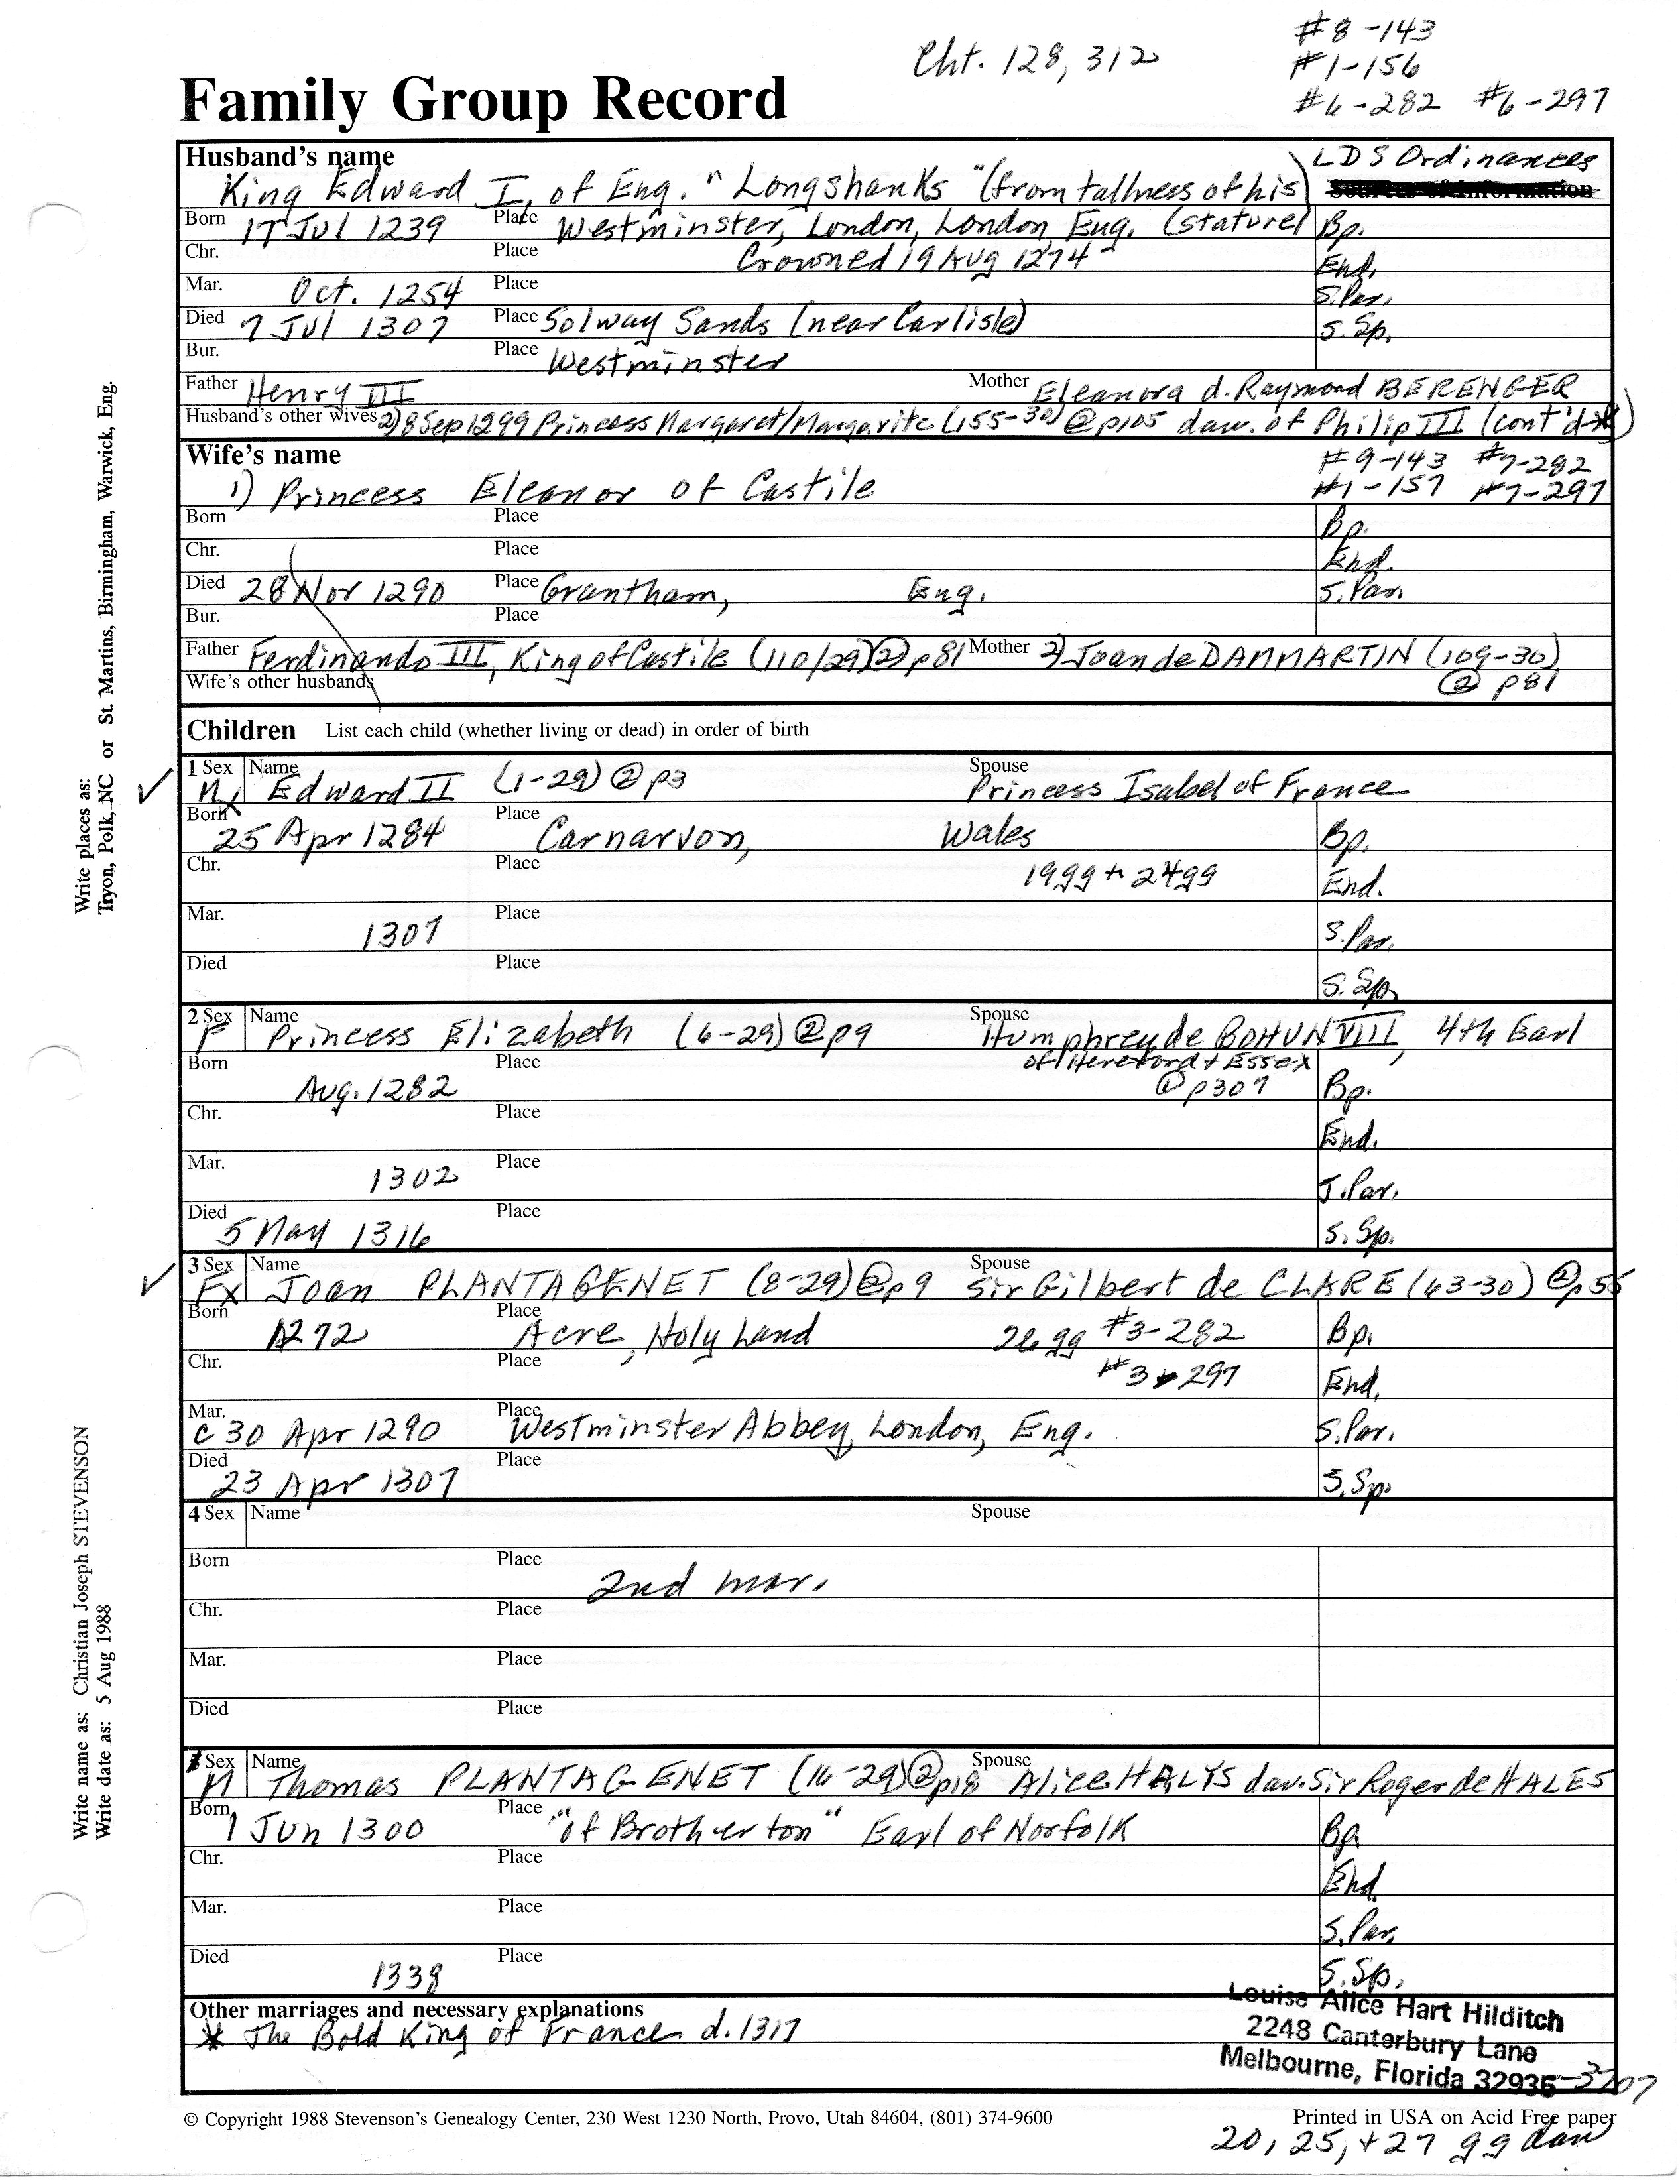 Cht. 128, 312
#8-143
#1-156
#6-282 #6-297
Family Group Record
Husband's name
King Edward I, of Eng. "Longshanks" (from tallness of his
LDS Ordinances
Sources of Information
Born 17 Jul 1239 Place Westminster, London, London, Eng. (stature) Bp.
Chr. Place Crowned 19 Aug 1274 End.
Mar. Oct. 1254 Place S.Par.
Died 7 Jul 1307 Place Solway Sands (near Carlisle) S.Sp.
Bur. Place Westminster
Father Henry III Mother Eleanora d. Raymond BERENGER
Husband's other wives 2) 8 Sep 1299 Princess Margaret/Margarite (155-30) @ p105 dau. of Philip III (cont'd *)
Wife's name #9-143 #7-282
1) Princess Eleanor of Castile #1-157 #7-297
Born Place Bp.
Chr. Place End.
Died 28 Nov 1290 Place Grantham, Eng. S.Par.
Bur. Place
Father Ferdinando III, King of Castile (110/29) ② p81 Mother 2) Joan de DAMMARTIN (109-30)
Wife's other husbands ② p81
Children List each child (whether living or dead) in order of birth
1 Sex Name Spouse
M x Edward II (1-29) ② p3 Princess Isabel of France
Born 25 Apr 1284 Place Carnarvon, Wales Bp.
Chr. Place 19gg + 24gg End.
Mar. 1307 Place S.Par.
Died Place S.Sp.
2 Sex Name Spouse
F Princess Elizabeth (6-29) ② p9 Humphrey de BOHUN VIII, 4th Earl
of Hereford + Essex
Born Aug. 1282 Place ① p307 Bp.
Chr. Place End.
Mar. 1302 Place S.Par.
Died 5 May 1316 Place S.Sp.
3 Sex Name Spouse
F x Joan PLANTAGENET (8-29) ② p9 Sir Gilbert de CLARE (63-30) ② p55
Born 1272 Place Acre, Holy Land 26gg #3-282 Bp.
Chr. Place #3-297 End.
Mar. c 30 Apr 1290 Place Westminster Abbey, London, Eng. S.Par.
Died 23 Apr 1307 Place S.Sp.
4 Sex Name Spouse
Born Place 2nd mar.
Chr. Place
Mar. Place
Died Place
Sex Name Spouse
M Thomas PLANTAGENET (16-29) ② p18 Alice HALYS dau. Sir Roger de HALES
Born 1 Jun 1300 Place "of Brotherton" Earl of Norfolk Bp.
Chr. Place End.
Mar. Place S.Par.
Died 1338 Place S.Sp.
Other marriages and necessary explanations
* The Bold King of France d. 1317
Louise Alice Hart Hilditch
2248 Canterbury Lane
Melbourne, Florida 32935-3207
© Copyright 1988 Stevenson's Genealogy Center, 230 West 1230 North, Provo, Utah 84604, (801) 374-9600
Printed in USA on Acid Free paper
20, 25, + 27 gg dau
Write places as:
Tryon, Polk, NC or St. Martins, Birmingham, Warwick, Eng.
Write name as: Christian Joseph STEVENSON
Write date as: 5 Aug 1988